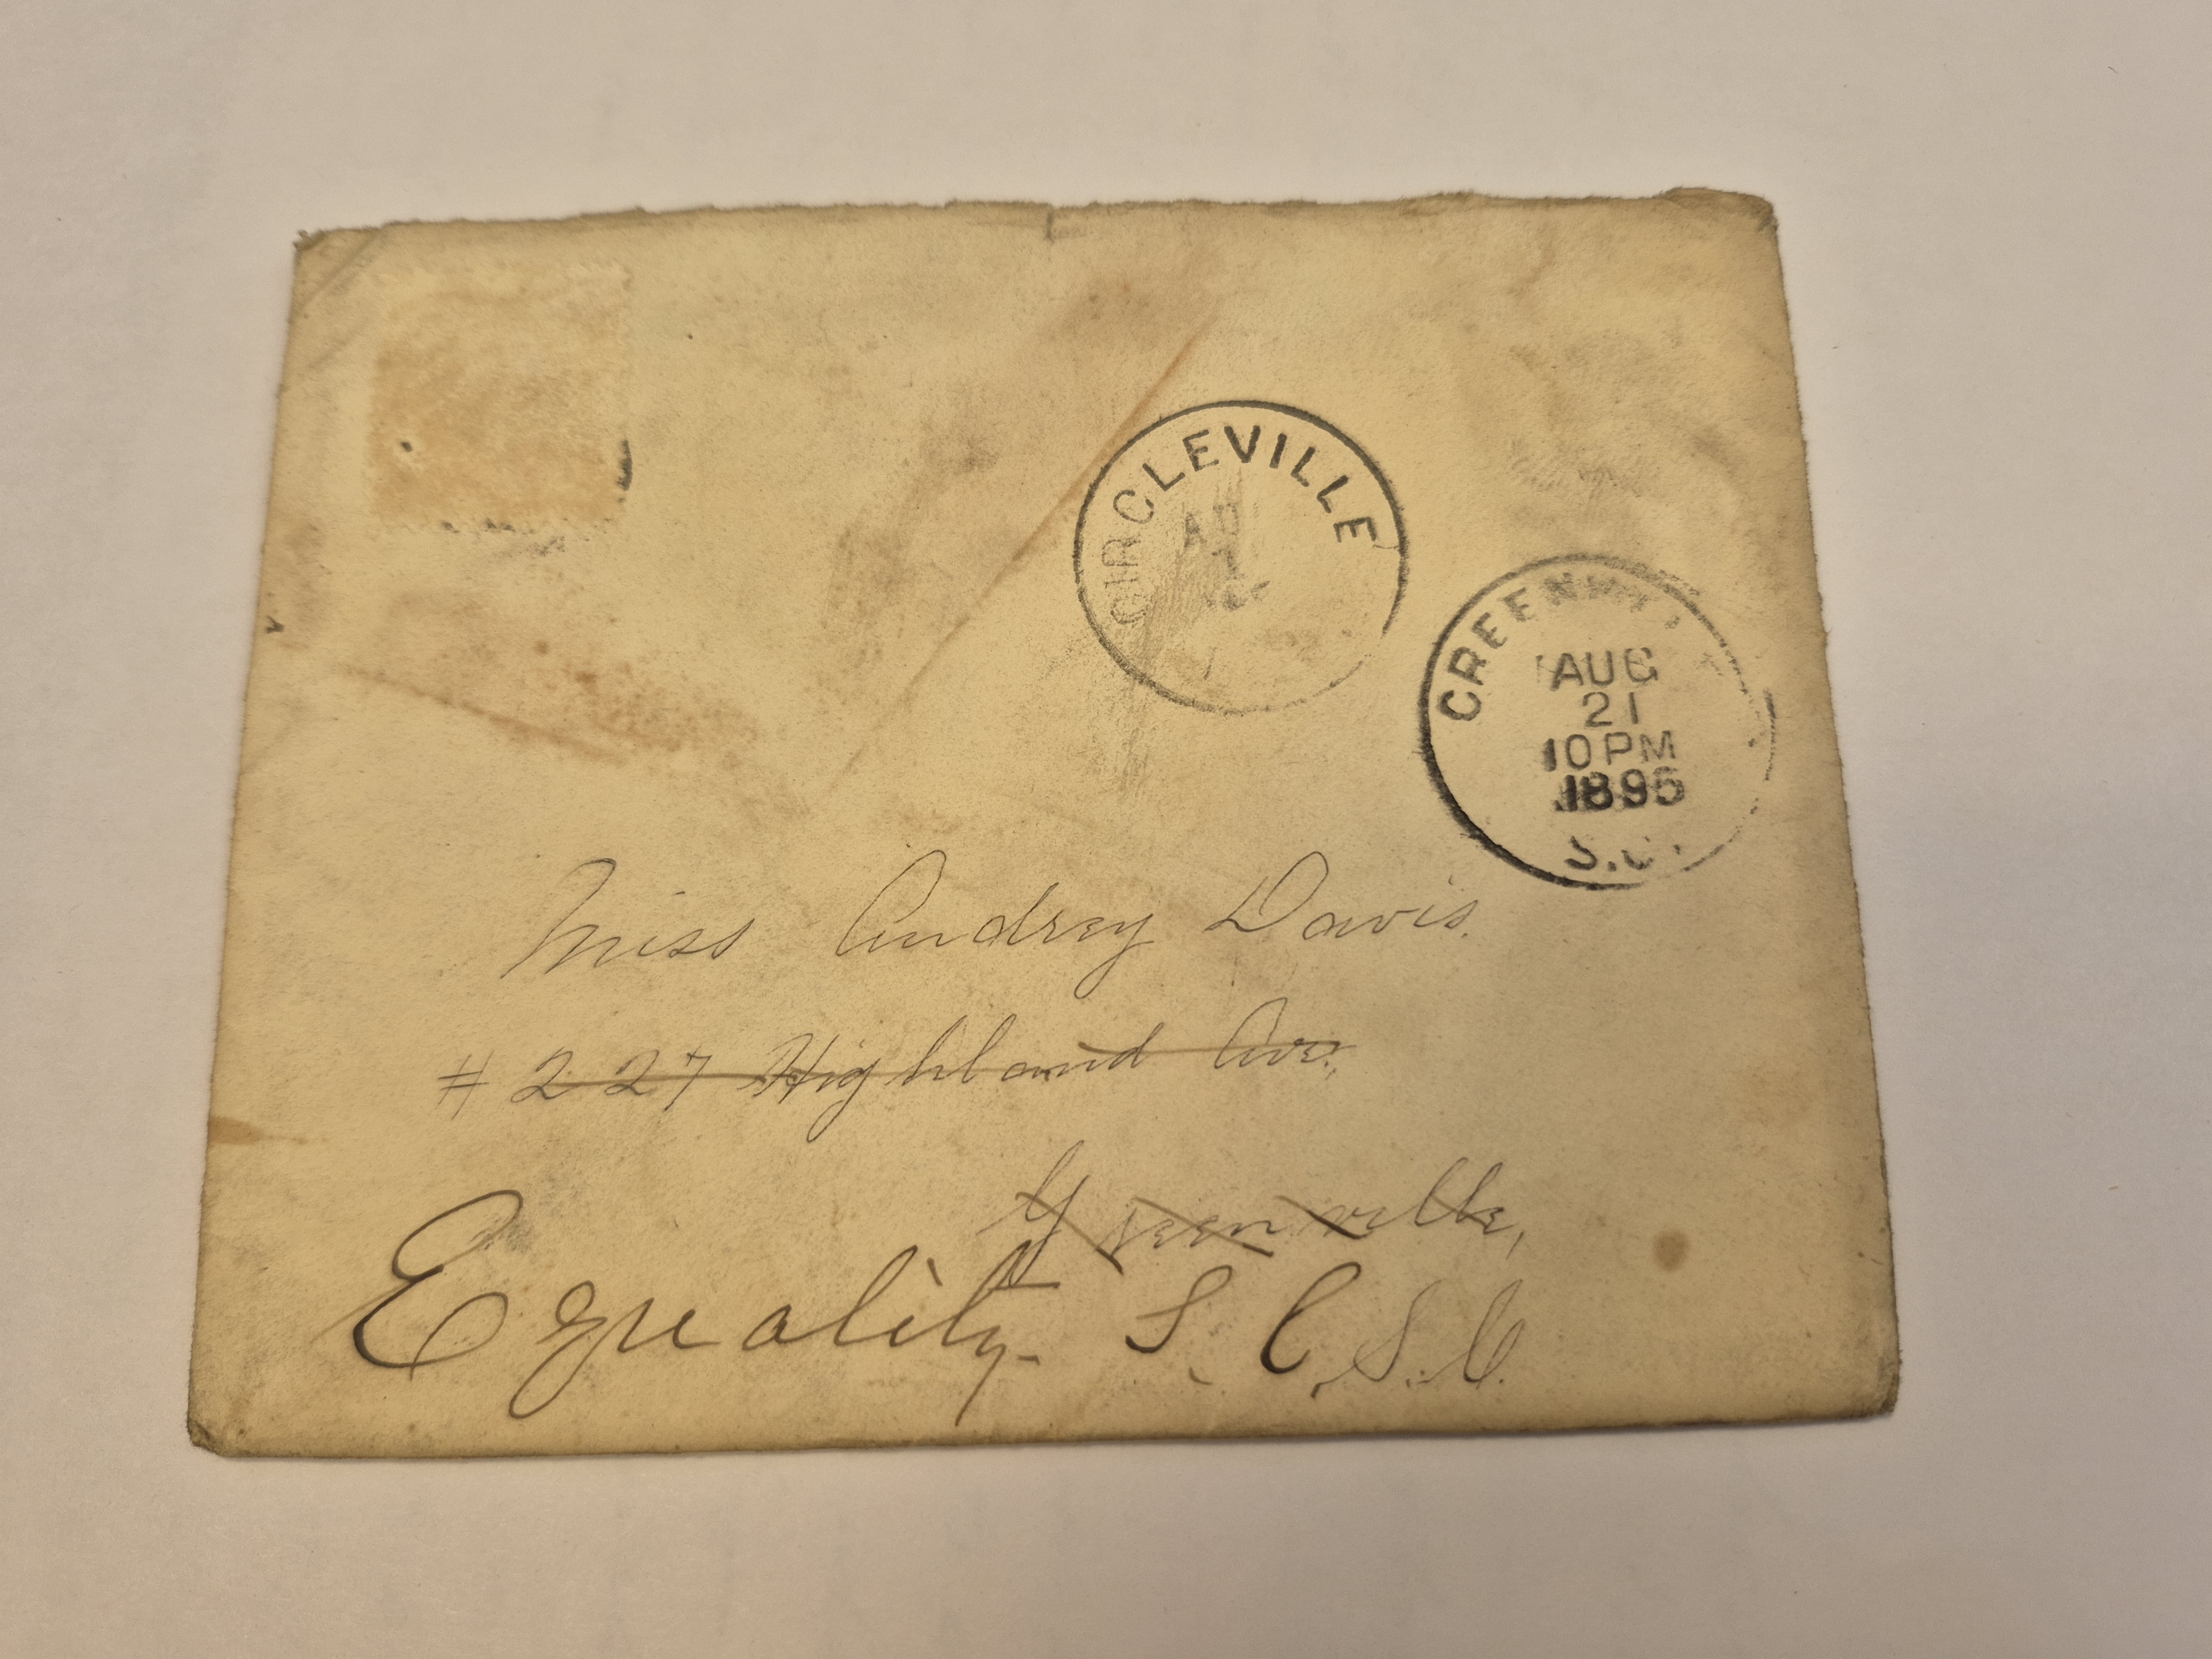 CIRCLEVILLE
AU
1
AUG
21
10 PM
1895
S.C.
Miss Audrey Davis.
# 227 Highland Ave.,
Greenville,
Equality S. C. S.C.